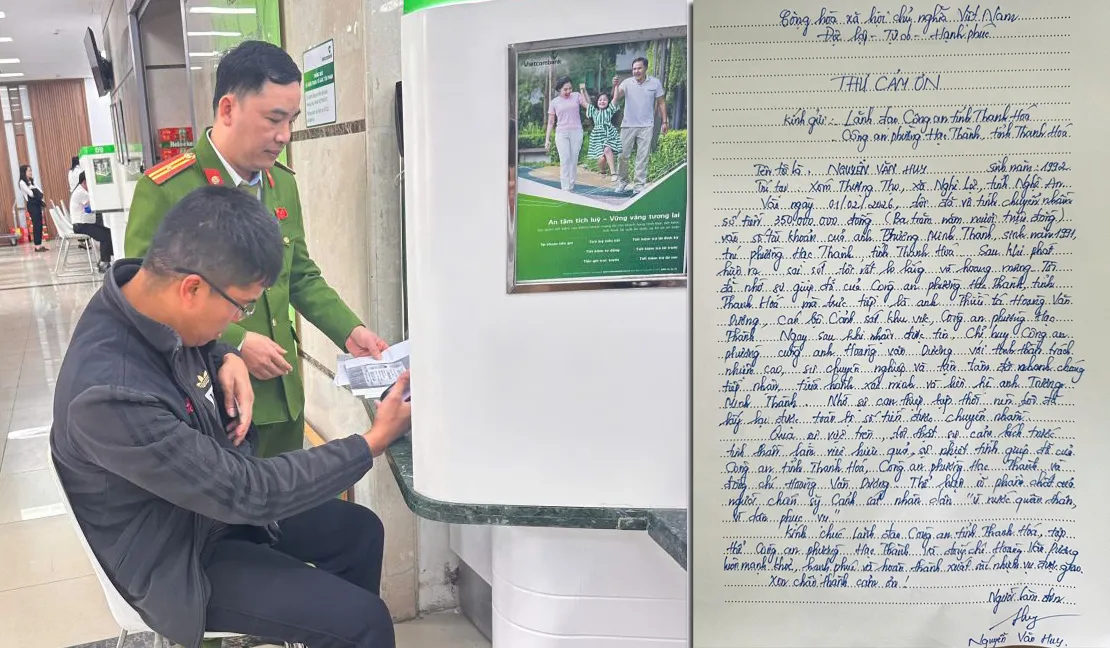 09
Heineken
Vietcombank
An tâm tích luỹ - Vững vàng tương lai
Tiết kiệm tự động
Cộng hòa xã hội chủ nghĩa Việt Nam
Độc lập - Tự do - Hạnh phúc
THƯ CẢM ƠN
Kính gửi: Lãnh đạo Công an tỉnh Thanh Hoá
Công an phường Hạc Thành, tỉnh Thanh Hoá
Tên tôi là NGUYỄN VĂN HUY sinh năm: 1992
Trú tại Xóm Thượng Thọ, xã Nghi Lộc, tỉnh Nghệ An.
Vào ngày 01/02/2026, tôi đã vô tình chuyển nhầm
số tiền 350.000.000 đồng (Ba trăm năm mươi triệu đồng)
vào số tài khoản của anh Phương Minh Thành, sinh năm 1991,
trú phường Hạc Thành, tỉnh Thanh Hoá. Sau khi phát
hiện ra sai sót tôi rất lo lắng và hoang mang. Tôi
đã nhờ sự giúp đỡ của Công an phường Hạc Thành, tỉnh
Thanh Hoá mà trực tiếp là anh Thiếu tá Hoàng Văn
Dương, Cán bộ Cảnh sát khu vực, Công an phường Hạc
Thành. Ngay sau khi nhận được tin, Chỉ huy Công an
phường cùng anh Hoàng Văn Dương với tinh thần trách
nhiệm cao, sự chuyên nghiệp và tận tâm đã nhanh chóng
tiếp nhận, tiến hành xác minh và liên hệ anh
Minh Thành. Nhờ sự can thiệp kịp thời nên tôi đã
lấy lại được toàn bộ số tiền đã chuyển nhầm
Qua sự việc trên, tôi thật sự cảm kích trước
tinh thần làm việc hiệu quả, sự nhiệt tình giúp đỡ của
Công an tỉnh Thanh Hoá, Công an phường Hạc Thành và
đồng chí Hoàng Văn Dương. Thể hiện rõ phẩm chất của
người chiến sỹ Cảnh sát nhân dân "vì nước quên thân,
vì dân phục vụ"
Kính chúc Lãnh đạo Công an tỉnh Thanh Hoá, tập
thể Công an phường Hạc Thành và đồng chí Hoàng Văn Dương
luôn mạnh khoẻ, hạnh phúc và hoàn thành xuất sắc nhiệm vụ được giao.
Xin chân thành cảm ơn!
Người làm đơn
Huy
Nguyễn Văn Huy.